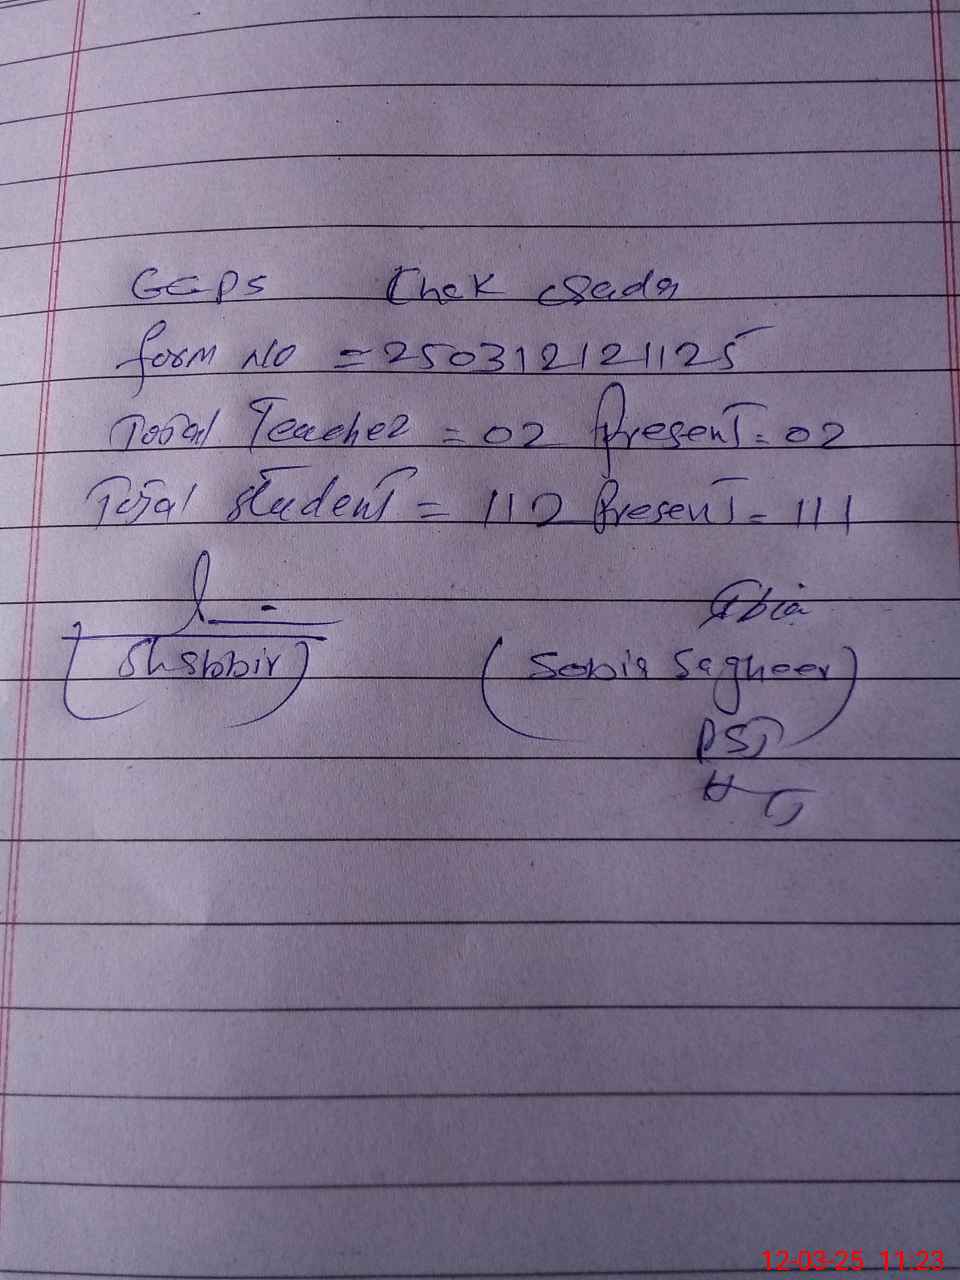 GGPS Chak Sada
form NO = 250312121125
Total Teacher = 02 Present = 02
Total student = 112 Present = 111
(Shabbir) (Sobia Sagheer)
PST
12-03-25 11:23